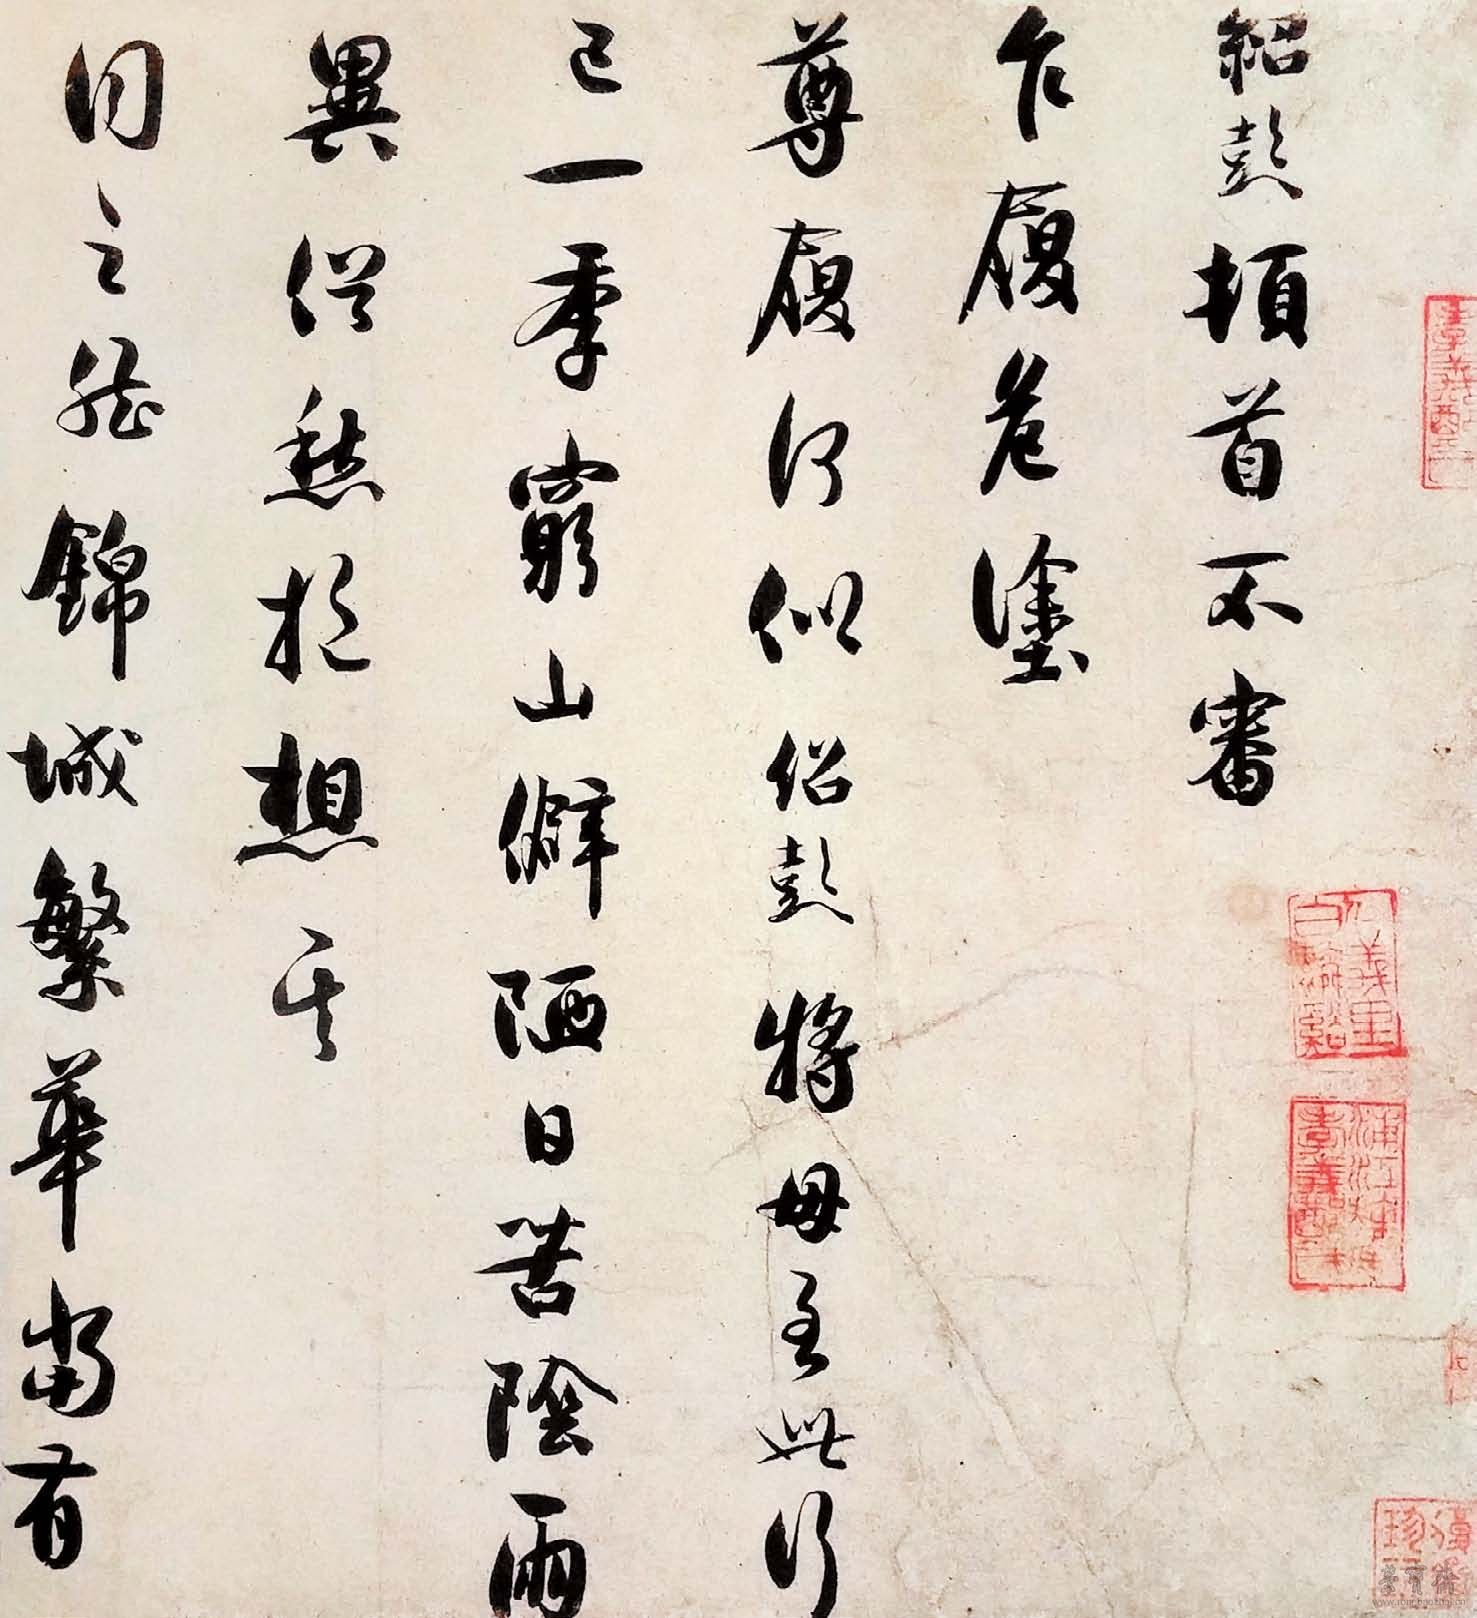 紹彭頓首不審
乍履危塗
尊履何似紹彭將母至此行
已一季窮山僻陋日苦陰雨
異俗愁抱想其
同之然錦城繁華當有